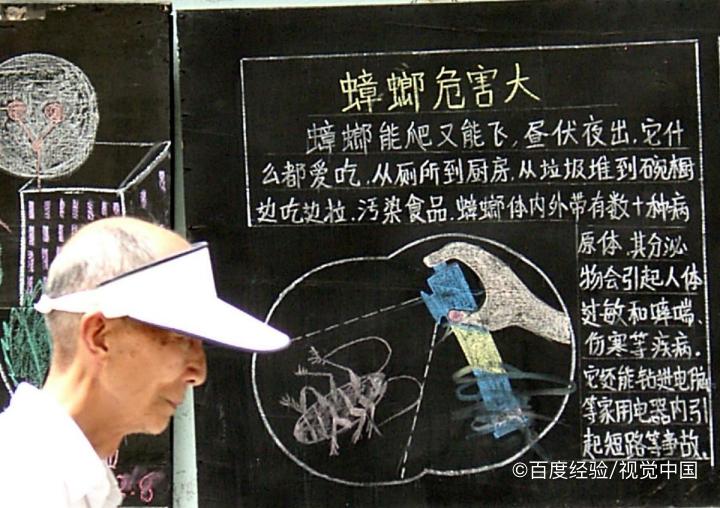 蟑螂危害大
蟑螂能爬又能飞,昼伏夜出,它什
么都爱吃,从厕所到厨房,从垃圾堆到碗橱
边吃边拉,污染食品,蟑螂体内外带有数十种病
原体,其分泌
物会引起人体
过敏和哮喘、
伤寒等疾病.
它还能钻进电脑
等家用电器内引
起短路等事故.
8
©百度经验/视觉中国